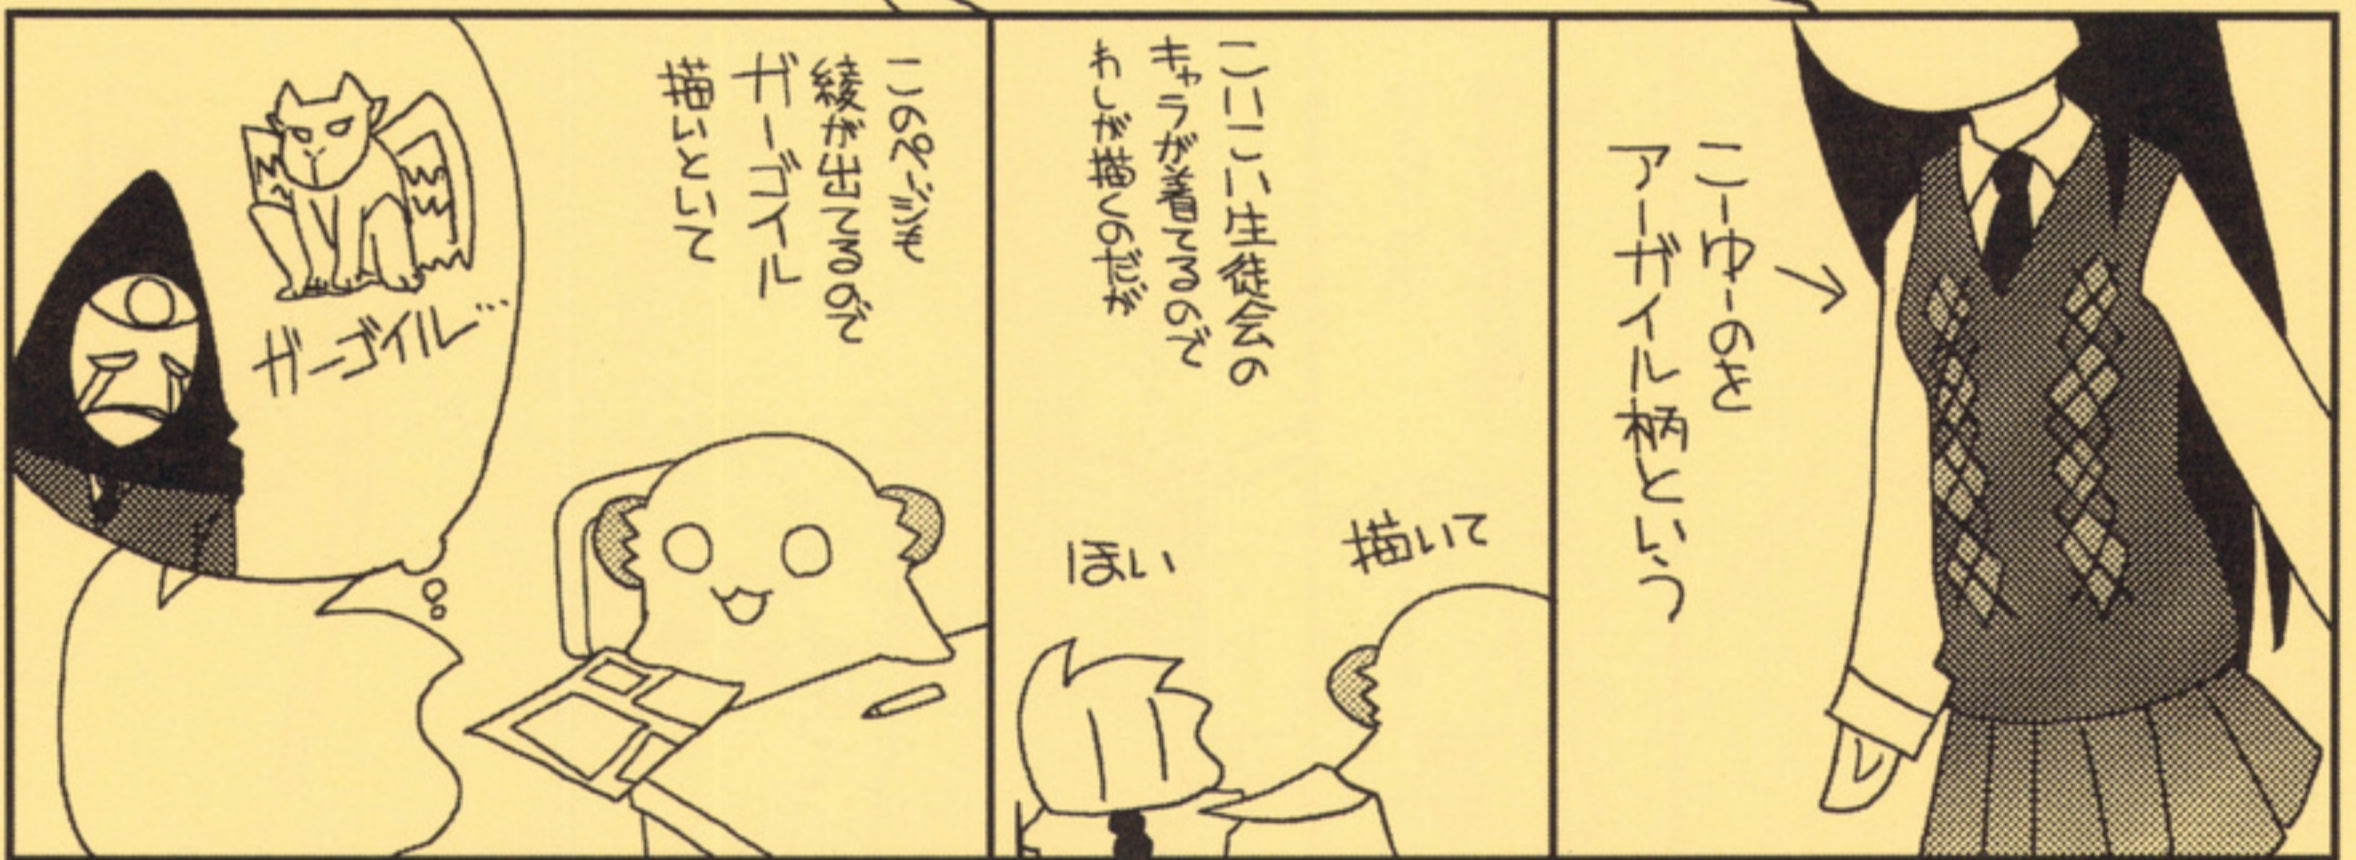 こーゆーのを
アーガイル柄という
こいこい生徒会の
キャラが着てるので
わしが描くのだが
描いて
ほい
このページも
綾が出てるので
ガーゴイル
描いといて
ガーゴイル…